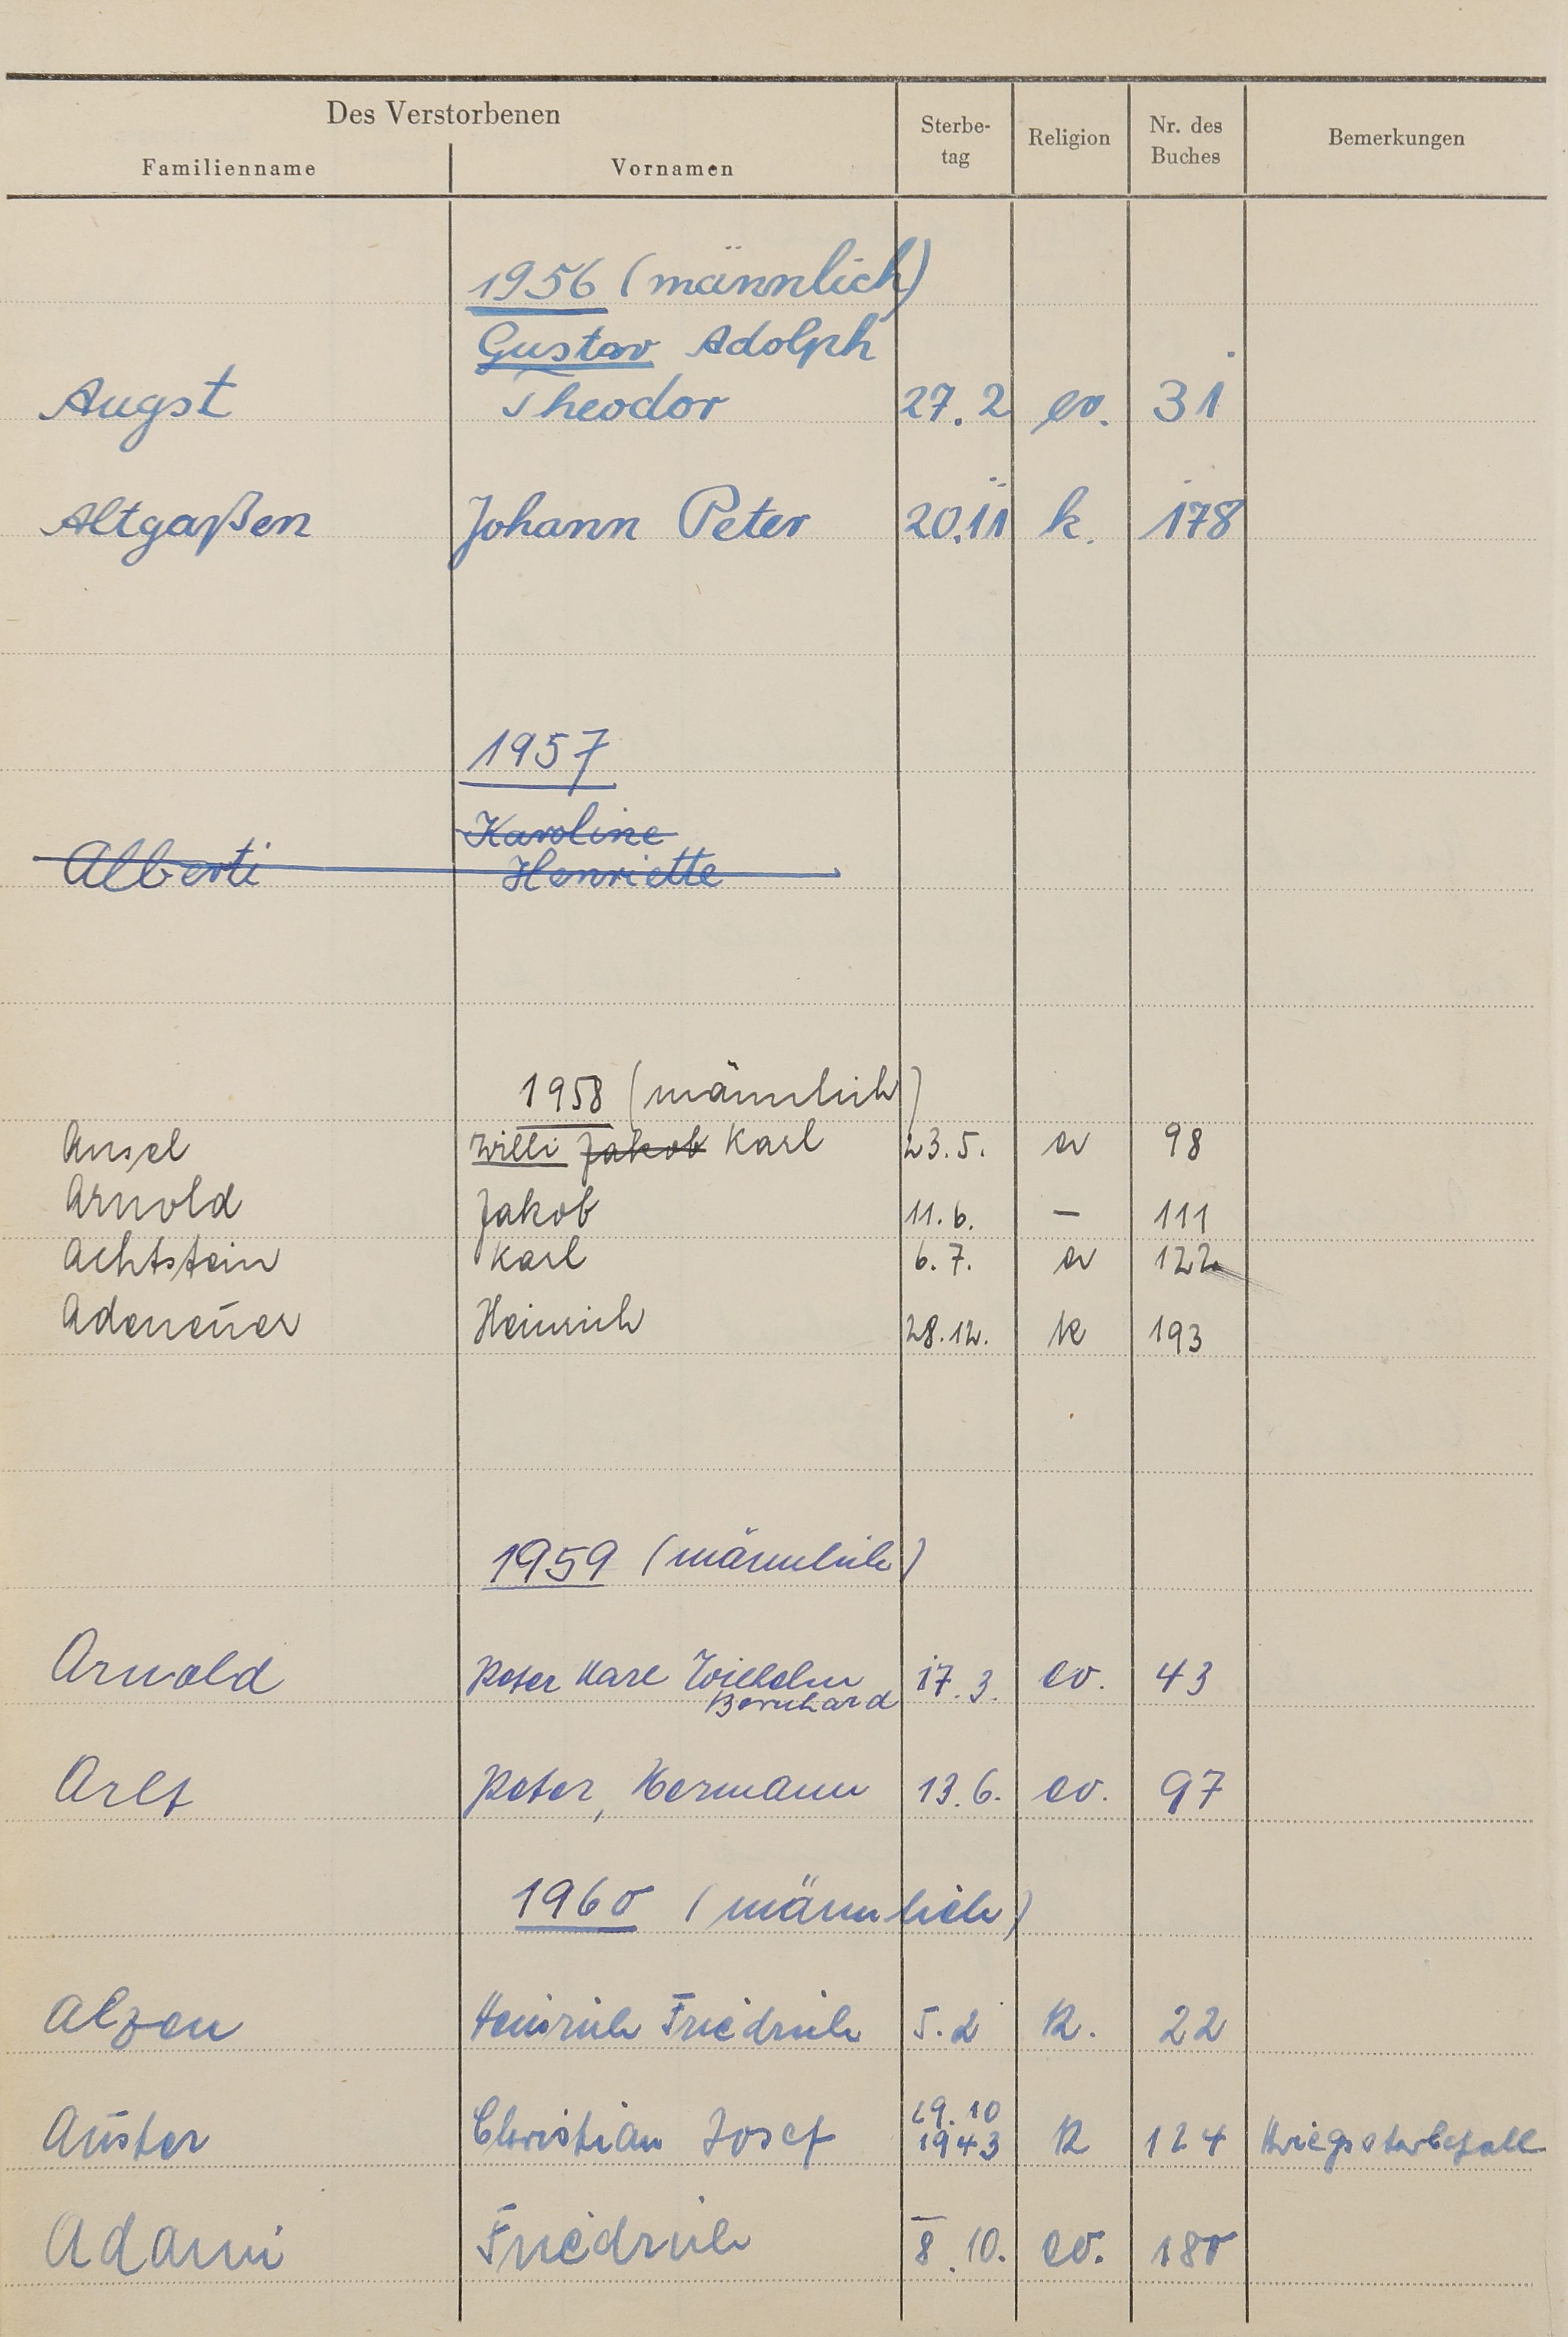 Des Verstorbenen
Familienname Vornamen Sterbe-tag Religion Nr. des Buches Bemerkungen
1956 (männlich)
Gustav Adolph
Augst Theodor 27.2 ev. 31
Altgaßen Johann Peter 20.11 k. 178
1957
Karoline
Alberti Henriette
1958 (männlich)
Ansel Willi Jakob Karl 23.5. ev 98
Arnold Jakob 11.6. — 111
Achtstein Karl 6.7. ev 122
Adeneuer Heinrich 28.12. k 193
1959 (männlich)
Arnold Peter Karl Wilhelm 17.3. ev. 43
Bernhard
Arlt Peter, Hermann 13.6. ev. 97
1960 (männlich)
Alzen Heinrich Friedrich 5.2 k. 22
29.10
Auster Christian Josef 1943 k 124 Kriegssterbefall
Adami Friedrich 8.10. ev. 180